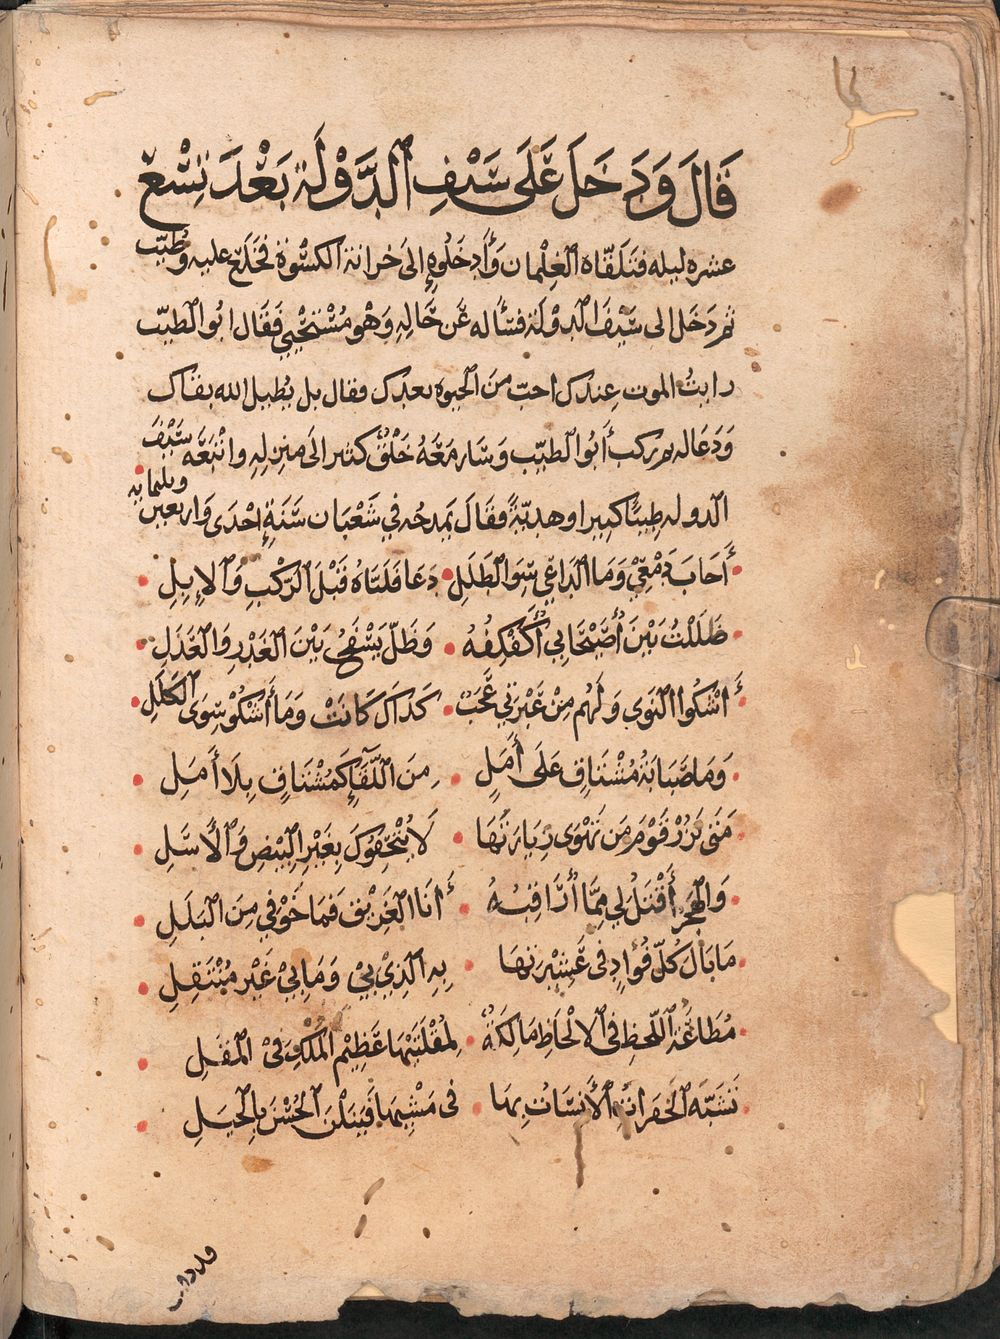 قَالَ وَدَخَلَ عَلَى سَيْفِ الدَّوْلَةِ بَعْدَ تِسْعَ
عشره ليله فَتَلَقَّاهُ الغِلْمَان وَأَدخَلُوهِ إلىَ خزانة الكسْوَة فخَلَعَ عليه وَطُيِّبَ
ثم دَخَل الى سَيْفَ الدوْلَة فسَأله عَن حَالِهِ وَهْوَ مُسْتحْيِي فَقَال ابُو الطيّب
رايتُ الموت عِندك احبّ منَ الحيوه بعدك فقال بل يُطيل الله بقاك
وَدَعَا له ثم ركب أَبُو الطيّب وَسَار مَعَهُ خَلْقٌ كثير الىَ منزلِهِ واتْبَعَه سَيْفَ
الدوله طِيبًا كبيرا وهديّةً فقَال يَمدحُه في شَعْبَان سَنَةِ إحْدَى وَاربعين وثلثمائه
أَجَابَ دَمْعِي وَمَا الدَّاعِي سِوَى الطَّلَلِ دَعَا فَلَبَّاهُ قَبْلَ الرَّكْبِ وَالإِبِلِ
ظَلَلْتُ بَيْنَ أُصَيْحَابِي أُكَفْكِفُهُ وَظَلّ يَسْفَحُ بَيْنَ العُذْرِ وَالعَذَلِ
أَشْكُوا النَوَى وَلَهُم مِنْ عَبْرَتي عَجَبْ كَذَاكَ كَانَتْ وَمَا أَشْكُو سِوَى الكَلَلِ
وَمَا صَبَابَةُ مُشْتَاقٍ عَلَى أَمَلٍ مِنَ اللِّقَآءِ كَمُشْتَاقٍ بِلَا أَمَلِ
مَتَى تَزُرْ قَوْمَ مَن تَهْوَى زِيَارَتَهَا لَا يُتْحِفُوكَ بِغَيْرِ البِيْضِ وَالأَسَلِ
وَالهَجْرُ أَقْتَلُ لِي مِمَّا أُرَاقِبُهُ أَنَا الغَرِيْق فَمَا خَوْفِي مِنَ البَلَلِ
مَا بَال كُلّ فُوَادٍ في عَشِيْرَتهَا بِهِ الَّذِيْ بِيْ وَمَا بِيْ غَيْرَ مُنْتَقِلِ
مُطَاعَةُ اللّحظِ في الالحَاظِ مَالِكَةٌ لِمُقْلَتَيْهَا عَظِيْمُ المُلْكِ فيْ المُقَلِ
تَشَبَّهَ الخَفِرَاتُ الأَنِسَاتُ بِهَا في مَشْيِهَا فَيَنَلْنَ الحُسْنَ بِالحِيَلِ